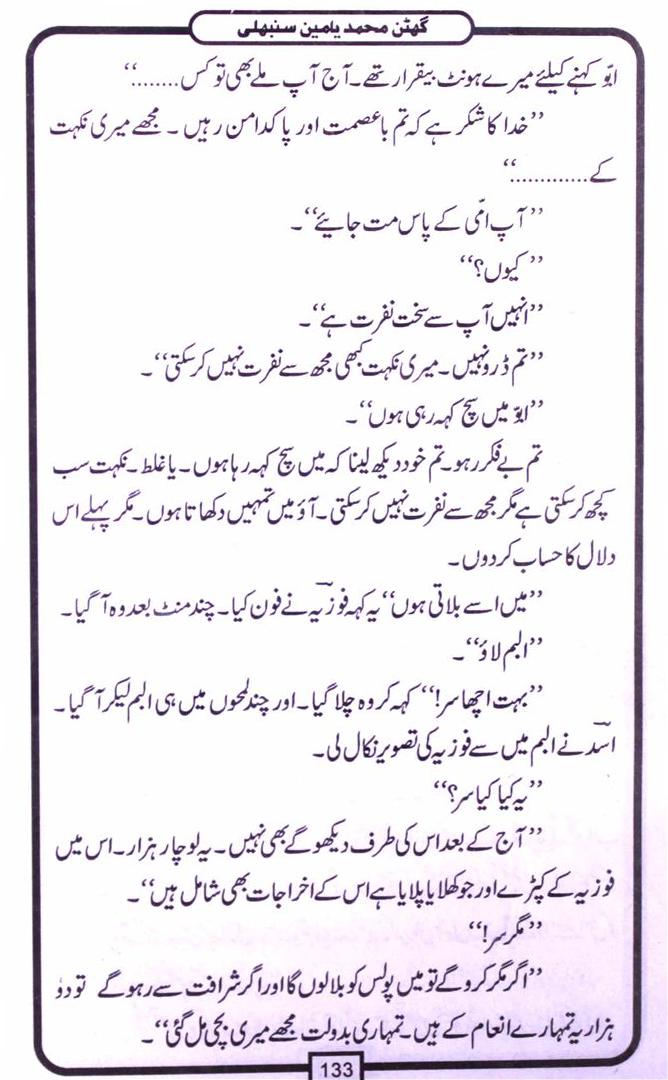 گھٹن محمد یامین سنبھلی
ابّو کہنے کیلئے میرے ہونٹ بیقرار تھے۔ آج آپ ملے بھی تو کس........‘‘
’’خدا کا شکر ہے کہ تم باعصمت اور پاکدامن رہیں ۔ مجھے میری نکہت
کے.............‘‘
’’آپ امّی کے پاس مت جایئے‘‘۔
’’کیوں؟‘‘
’’انہیں آپ سے سخت نفرت ہے‘‘۔
’’تم ڈرو نہیں۔ میری نکہت کبھی مجھ سے نفرت نہیں کرسکتی‘‘۔
’’ابّو میں سچ کہہ رہی ہوں‘‘۔
تم بے فکر رہو۔ تم خود دیکھ لینا کہ میں سچ کہہ رہا ہوں۔ یا غلط۔ نکہت سب
کچھ کرسکتی ہے مگر مجھ سے نفرت نہیں کرسکتی۔ آؤ میں تمہیں دکھاتا ہوں۔ مگر پہلے اس
دلال کا حساب کردوں۔
’’میں اسے بلاتی ہوں‘‘ یہ کہہ فوزیہ نے فون کیا۔ چند منٹ بعد وہ آ گیا۔
’’البم لاؤ‘‘۔
’’بہت اچھا سر!‘‘ کہہ کر وہ چلا گیا۔ اور چند لمحوں میں ہی البم لیکر آ گیا۔
اسد نے البم میں سے فوزیہ کی تصویر نکال لی۔
’’یہ کیا کیا سر؟‘‘
’’آج کے بعد اس کی طرف دیکھو گے بھی نہیں۔ یہ لو چار ہزار۔ اس میں
فوزیہ کے کپڑے اور جو کھلایا پلایا ہے اس کے اخراجات بھی شامل ہیں‘‘۔
’’مگر سر!‘‘
’’اگر مگر کرو گے تو میں پولس کو بلالوں گا اور اگر شرافت سے رہو گے تو دو
ہزار یہ تمہارے انعام کے ہیں۔ تمہاری بدولت مجھے میری بچی مل گئی‘‘۔
133